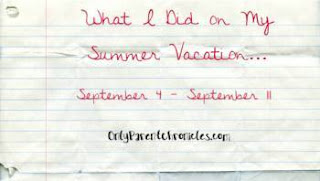 What I Did on My
Summer Vacation...
September 4 - September 11
OnlyParentChronicles.com